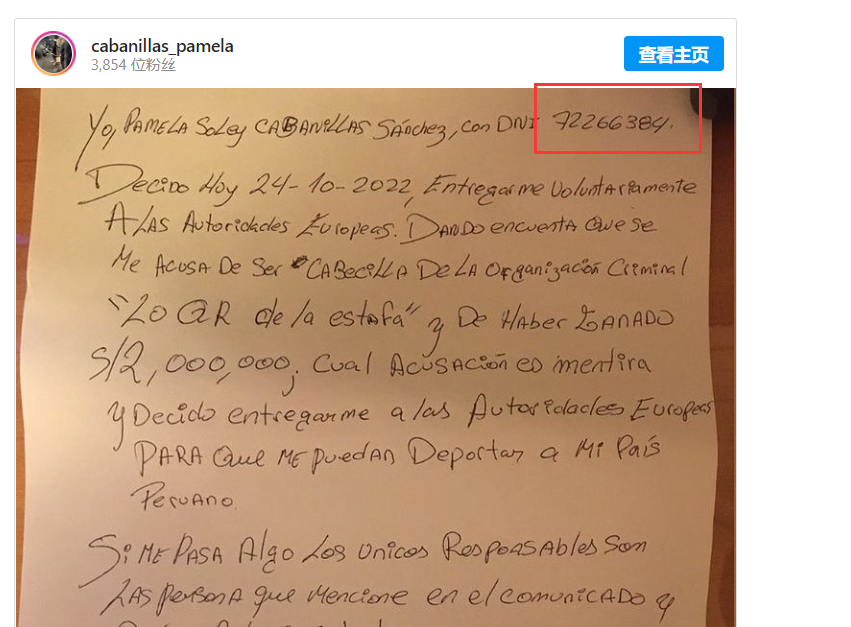 cabanillas_pamela
3,854 位粉丝
查看主页
Yo, PAMELA Soley CABANILLAS SÁnchez, con DNI 72266384.
Decido Hoy 24-10-2022, Entregarme Voluntariamente
A LAS Autoridades Europeas. DANDO encuentA Que Se
Me Acusa De Ser CABecilla De LA Organización Criminal
"LO QR de la estafa" y De HAber GANADO
S/2,000,000, Cual AcusAción es mentira
y Decido entregarme a las Autoridades Europeas
PARA Que Me puedan Deportar a Mi País
Peruano.
Si Me PASA Algo Los Unicos Responsables Son
LAS persona que Mencione en el comunicado y